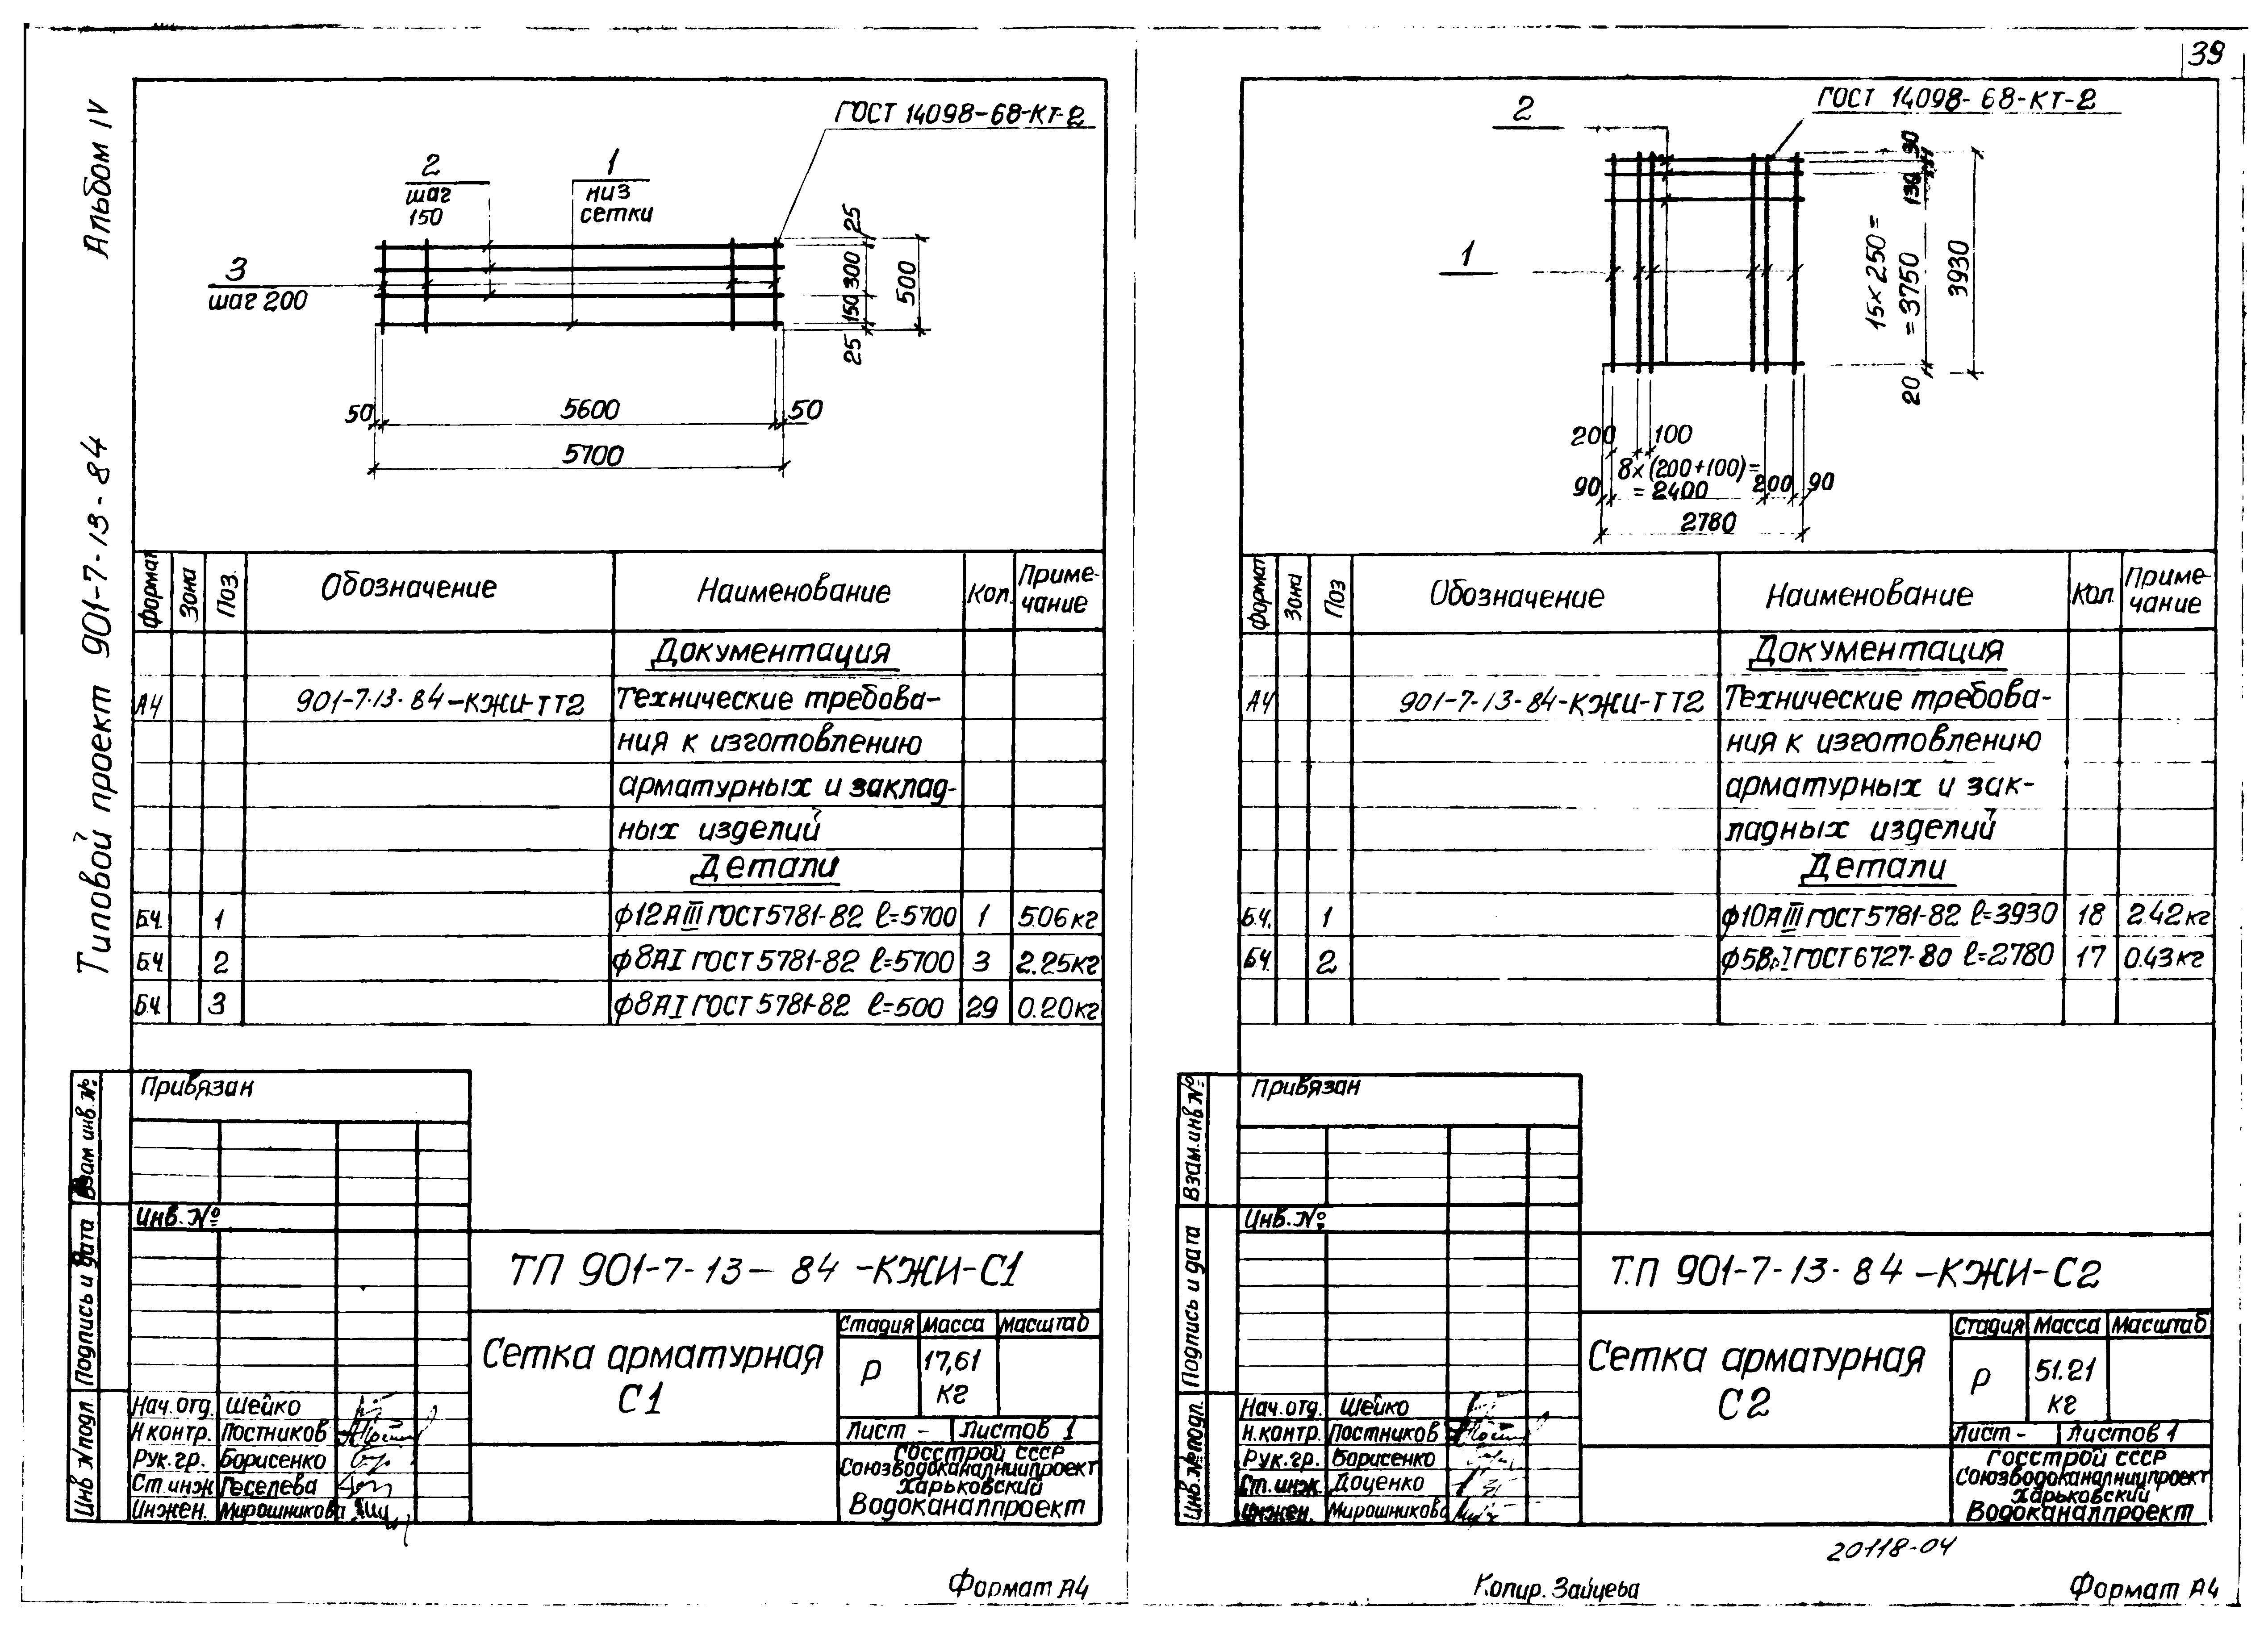 39
Альбом IV
Типовой проект 901-7-13-84
ГОСТ 14098-68-КТ-2
2
шаг
150
1
низ
сетки
3
шаг 200
25
300
150
25
500
50
5600
50
5700
Формат
Зона
Поз.
Обозначение
Наименование
Кол.
Приме-
чание
Документация
А4 901-7-13-84-КЖИ-ТТ2 Технические требова-
ния к изготовлению
арматурных и заклад-
ных изделий
Детали
Б.Ч. 1 ф12АIII ГОСТ 5781-82 ℓ=5700 1 5.06 кг
Б.Ч. 2 ф8АI ГОСТ 5781-82 ℓ=5700 3 2.25 кг
Б.Ч. 3 ф8АI ГОСТ 5781-82 ℓ=500 29 0.20 кг
Взам инв. №
Подпись и дата
Инв № подл.
Привязан
Инв. №
ТП 901-7-13-84-КЖИ-С1
Сетка арматурная
С1
Стадия Масса Масштаб
Р
17,61
кг
Лист -
Листов 1
Нач. отд. Шейко
Н контр. Постников
Рук. гр. Борисенко
Ст. инж Геселева
Инжен. Мирошникова
Госстрой СССР
Союзводоканалниипроект
Харьковский
Водоканалпроект
Формат А4
2
ГОСТ 14098-68-КТ-2
1
30
130
15×250=
=3750
3930
20
200
100
8×(200+100)=
=2400
90
200
90
2780
Формат
Зона
Поз
Обозначение
Наименование
Кол.
Приме-
чание
Документация
А4 901-7-13-84-КЖИ-ТТ2 Технические требова-
ния к изготовлению
арматурных и зак-
ладных изделий
Детали
Б.Ч. 1 ф10АIII ГОСТ 5781-82 ℓ=3930 18 2.42 кг
Б.Ч. 2 ф5ВрI ГОСТ 6727-80 ℓ=2780 17 0.43 кг
Взам. инв №
Подпись и дата
Инв. № подл.
Привязан
Инв. №
Т.П 901-7-13-84-КЖИ-С2
Сетка арматурная
С2
Стадия Масса Масштаб
Р
51.21
кг
Лист -
Листов 1
Нач. отд. Шейко
Н. контр. Постников
Рук. гр. Борисенко
Ст. инж. Доценко
Инжен. Мирошникова
Госстрой СССР
Союзводоканалниипроект
Харьковский
Водоканалпроект
20118-04
Копир. Зайцева
Формат А4